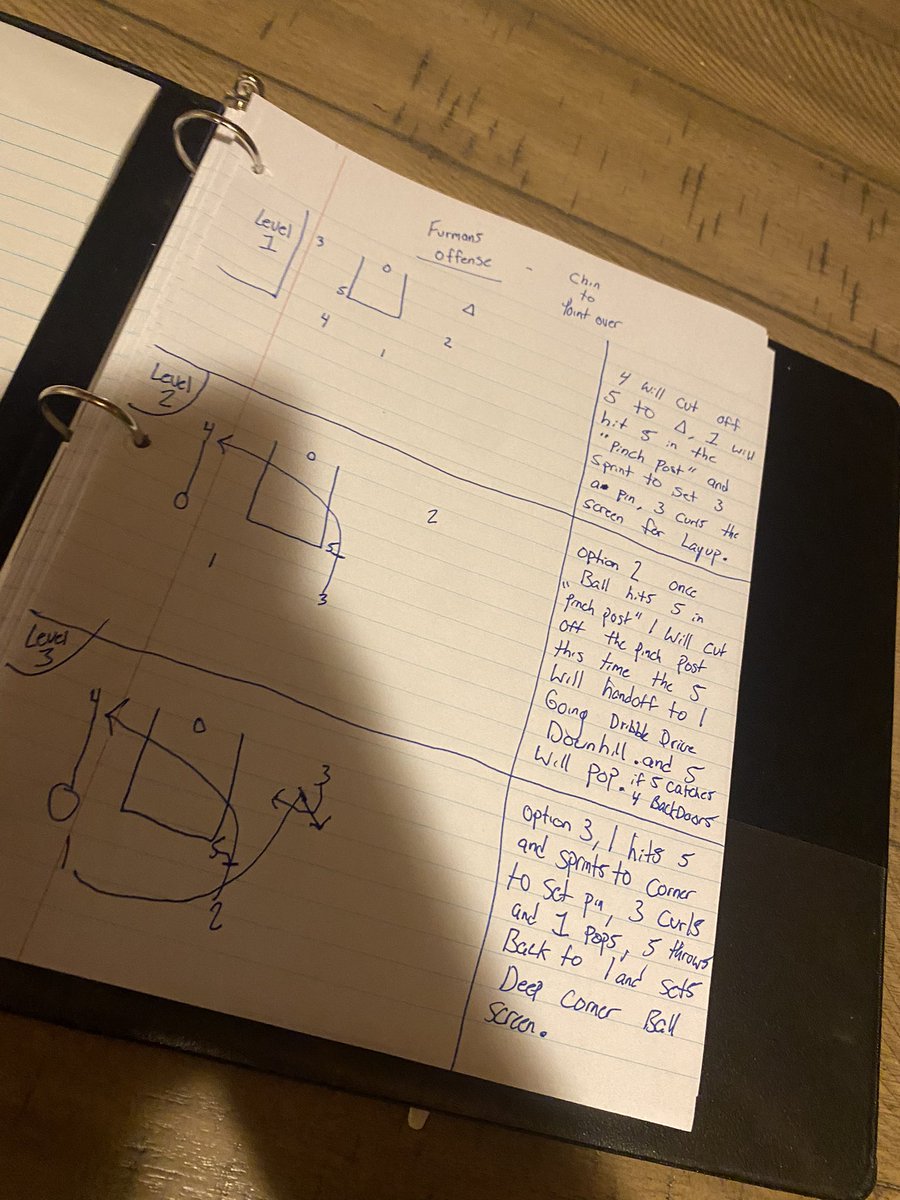 Level
1
Furmans
offense -
Chin
to
Point over
3
0
5
4
Δ
2
1
4 will cut off
5 to Δ, 1 will
hit 5 in the
"pinch post" and
Sprint to Set 3
a pin, 3 curls the
screen for Layup.
Level
2
4
0
5
2
1
3
Option 2 once
Ball hits 5 in
"pinch post" 1 will cut
off the pinch post
this time the 5
will handoff to 1
Going Dribble Drive
Downhill. and 5
will pop. if 5 catches
4 BackDoors
Level
3
4
0
3
5
1
2
Option 3, 1 hits 5
and sprints to corner
to set pin, 3 curls
and 1 pops, 5 throws
Back to 1 and sets
Deep Corner Ball
screen.